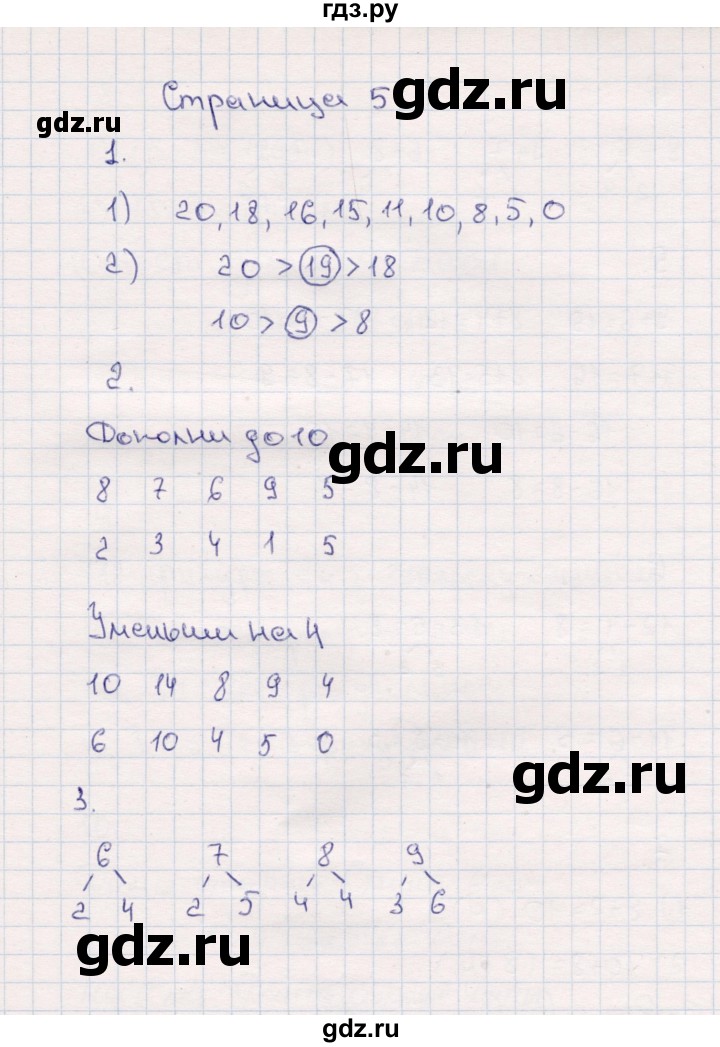 гдз.ру
Страница 5
gdz.ru
gdz.ru
1.
1) 20, 18, 16, 15, 11, 10, 8, 5, 0
2) 20 > 19 > 18
10 > 9 > 8
2.
Дополни до 10
gdz.ru
8 7 6 9 5
2 3 4 1 5
Уменьши на 4
10 14 8 9 4
6 10 4 5 0
gdz.ru
3.
6 7 8 9
2 4 2 5 4 4 3 6
gdz.ru
gdz.ru